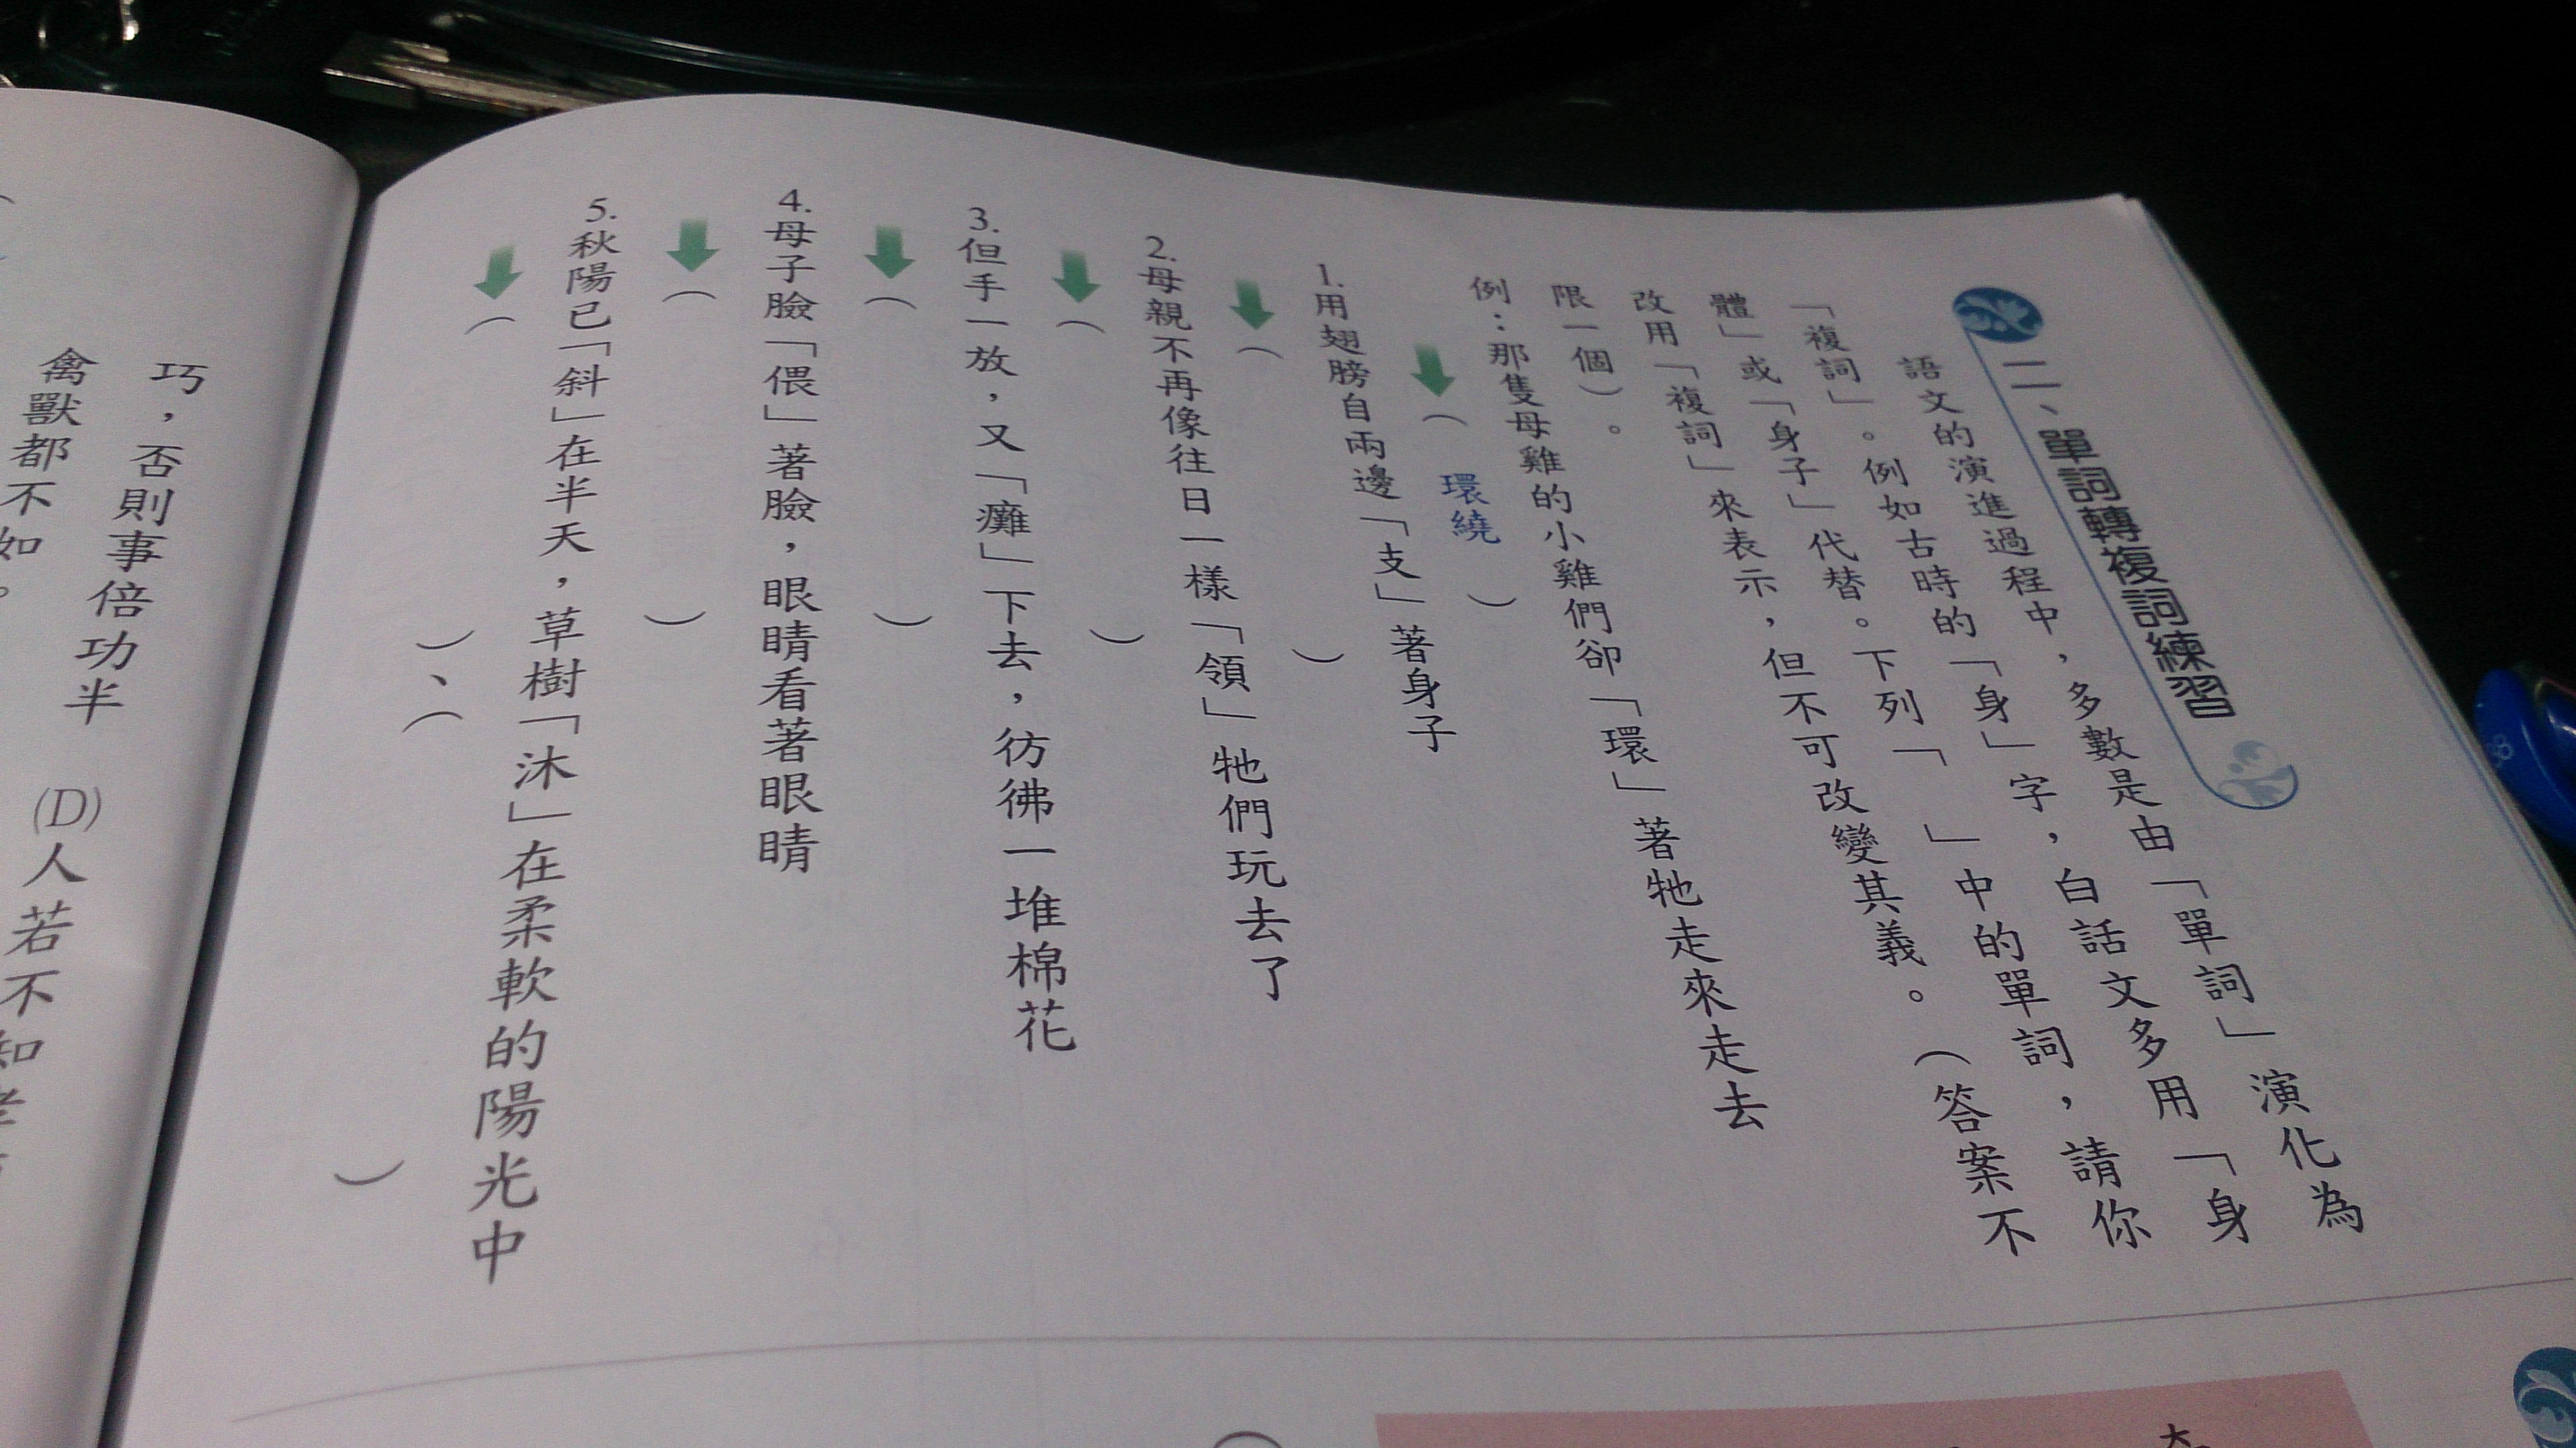 二、單詞轉複詞練習
語文的演進過程中，多數是由「單詞」演化為
「複詞」。例如古時的「身」字，白話文多用「身
體」或「身子」代替。下列「　」中的單詞，請你
改用「複詞」來表示，但不可改變其義。（答案不
限一個）。
例：那隻母雞的小雞們卻「環」著牠走來走去
（環繞）
1.用翅膀自兩邊「支」著身子
（　）
2.母親不再像往日一樣「領」牠們玩去了
（　）
3.但手一放，又「癱」下去，彷彿一堆棉花
（　）
4.母子臉「偎」著臉，眼睛看著眼睛
（　）
5.秋陽已「斜」在半天，草樹「沐」在柔軟的陽光中
（　）、（　）
巧，否則事倍功半
禽獸都不如。
(D)人若不知